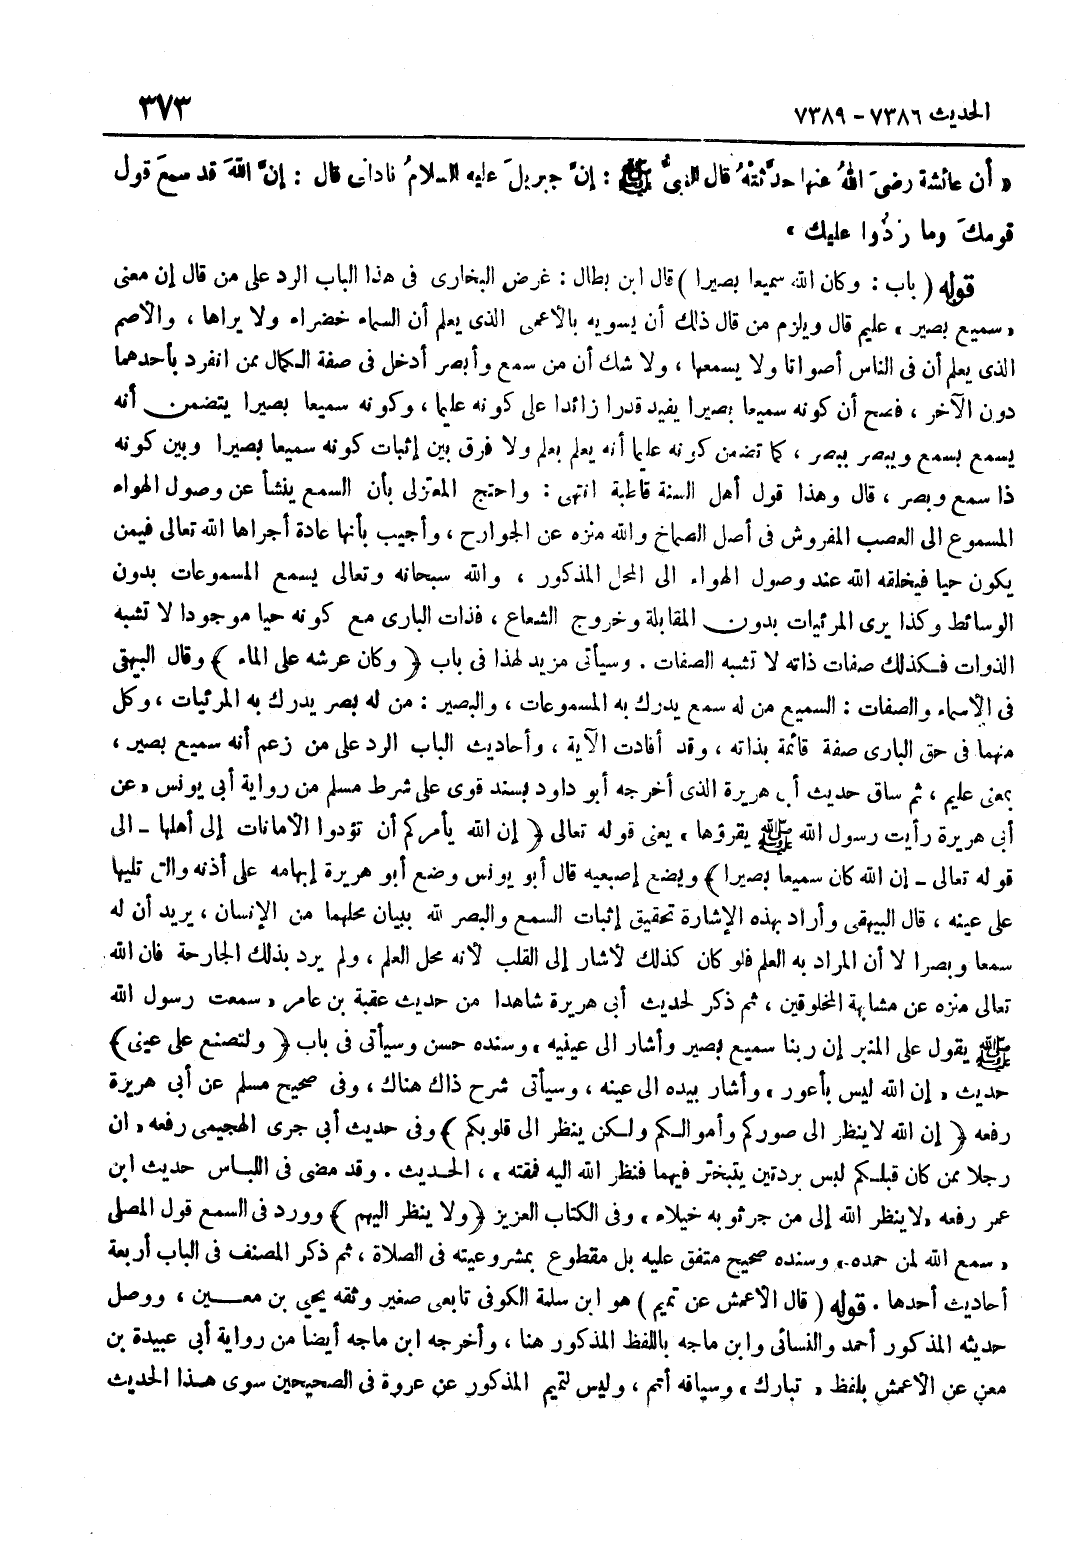 الحديث ٧٣٨٦ - ٧٣٨٩
٣٧٣
« أن عائشة رضىَ اللهُ عنها حدَّثتْهُ قال النبىُّ ﷺ : إنَّ جبريلَ عليه السلامُ نادانى قال : إنَّ اللهَ قد سمعَ قول
قومكَ وما ردُّوا عليك »
قوله ( باب : وكان الله سميعا بصيرا ) قال ابن بطال : غرض البخارى فى هذا الباب الرد على من قال إن معنى
« سميع بصير » عليم قال ويلزم من قال ذلك أن يسويه بالأعمى الذى يعلم أن السماء خضراء ولا يراها ، والأصم
الذى يعلم أن فى الناس أصواتا ولا يسمعها ، ولا شك أن من سمع وأبصر أدخل فى صفة الكمال ممن انفرد بأحدهما
دون الآخر ، فصح أن كونه سميعا بصيرا يفيد قدرا زائدا على كونه عليما ، وكونه سميعا بصيرا يتضمن أنه
يسمع بسمع ويبصر ببصر ، كما تضمن كونه عليما أنه يعلم بعلم ولا فرق بين إثبات كونه سميعا بصيرا وبين كونه
ذا سمع وبصر ، قال وهذا قول أهل السنة قاطبة انتهى : واحتج المعتزلى بأن السمع ينشأ عن وصول الهواء
المسموع الى العصب المفروش فى أصل الصماخ والله منزه عن الجوارح ، وأجيب بأنها عادة أجراها الله تعالى فيمن
يكون حيا فيخلقه الله عند وصول الهواء الى المحل المذكور ، والله سبحانه وتعالى يسمع المسموعات بدون
الوسائط وكذا يرى المرئيات بدون المقابلة وخروج الشعاع ، فذات البارى مع كونه حيا موجودا لا تشبه
الذوات فكذلك صفات ذاته لا تشبه الصفات . وسيأتى مزيد لهذا فى باب ﴿ وكان عرشه على الماء ﴾ وقال البيهقى
فى الأسماء والصفات : السميع من له سمع يدرك به المسموعات ، والبصير : من له بصر يدرك به المرئيات ، وكل
منهما فى حق البارى صفة قائمة بذاته ، وقد أفادت الآية ، وأحاديث الباب الرد على من زعم أنه سميع بصير ،
بمعنى عليم ، ثم ساق حديث أبى هريرة الذى أخرجه أبو داود بسند قوى على شرط مسلم من رواية أبى يونس « عن
أبى هريرة رأيت رسول الله ﷺ يقرؤها » يعنى قوله تعالى ﴿ إن الله يأمركم أن تؤدوا الأمانات إلى أهلها ـ الى
قوله تعالى ـ إن الله كان سميعا بصيرا ﴾ ويضع إصبعيه قال أبو يونس وضع أبو هريرة إبهامه على أذنه والتى تليها
على عينه ، قال البيهقى وأراد بهذه الإشارة تحقيق إثبات السمع والبصر لله ببيان محلهما من الإنسان ، يريد أن له
سمعا وبصرا لا أن المراد به العلم فلو كان كذلك لأشار إلى القلب لأنه محل العلم ، ولم يرد بذلك الجارحة فان الله
تعالى منزه عن مشابهة المخلوقين ، ثم ذكر لحديث أبى هريرة شاهدا من حديث عقبة بن عامر « سمعت رسول الله
ﷺ يقول على المنبر إن ربنا سميع بصير وأشار الى عينيه » وسنده حسن وسيأتى فى باب ﴿ ولتصنع على عينى ﴾
حديث « إن الله ليس بأعور » وأشار بيده الى عينه ، وسيأتى شرح ذاك هناك ، وفى صحيح مسلم عن أبى هريرة
رفعه ﴿ إن الله لا ينظر الى صوركم وأموالكم ولكن ينظر الى قلوبكم ﴾ وفى حديث أبى جرى الهجيمى رفعه « ان
رجلا ممن كان قبلكم لبس بردتين يتبختر فيهما فنظر الله اليه فمقته » ، الحديث . وقد مضى فى اللباس حديث ابن
عمر رفعه « لا ينظر الله إلى من جر ثوبه خيلاء » وفى الكتاب العزيز ﴿ ولا ينظر اليهم ﴾ وورد فى السمع قول المصلى
« سمع الله لمن حمده » وسنده صحيح متفق عليه بل مقطوع بمشروعيته فى الصلاة ، ثم ذكر المصنف فى الباب أربعة
أحاديث أحدها . قوله ( قال الأعمش عن تميم ) هو ابن سلمة الكوفى تابعى صغير وثقه يحيى بن معين ، ووصل
حديثه المذكور أحمد والنسائى وابن ماجه باللفظ المذكور هنا ، وأخرجه ابن ماجه أيضا من رواية أبى عبيدة بن
معن عن الأعمش بلفظ « تبارك » وسياقه أتم ، وليس لتميم المذكور عن عروة فى الصحيحين سوى هذا الحديث